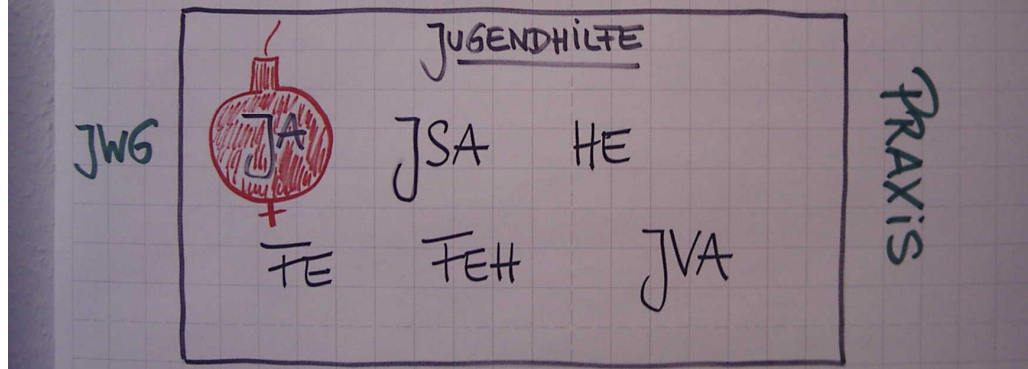 JUGENDHiLFE
JWG
JA JSA HE
FE FEH JVA
PRAXiS